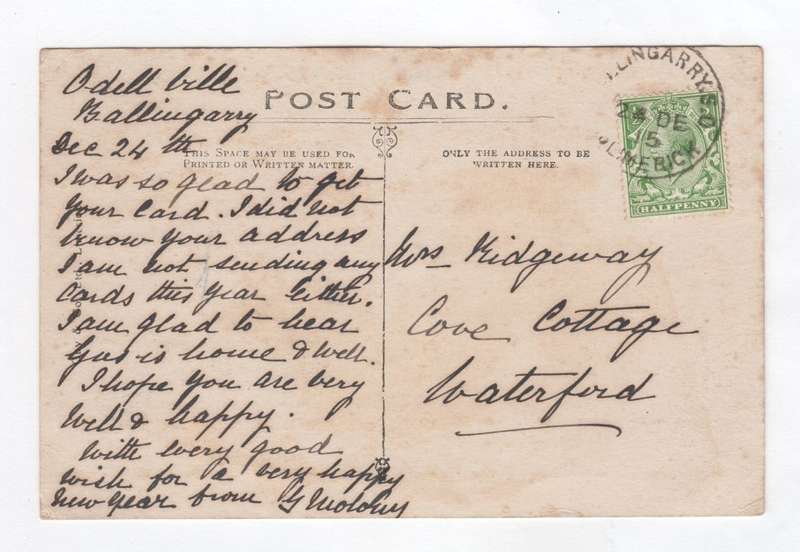 POST CARD.
THIS SPACE MAY BE USED FOR
PRINTED OR WRITTEN MATTER.
ONLY THE ADDRESS TO BE
WRITTEN HERE.
Odell Ville
Ballingarry
Dec 24th
I was so glad to get
your card. I did not
know your address
I am not sending any
cards this year either.
I am glad to hear
Gus is home & well.
I hope you are very
well & happy.
With every good
wish for a very happy
New Year from G Molony
Mrs Ridgeway
Cove Cottage
Waterford
LLINGARRY S.O
24 DE
5
LIMERICK
HALFPENNY